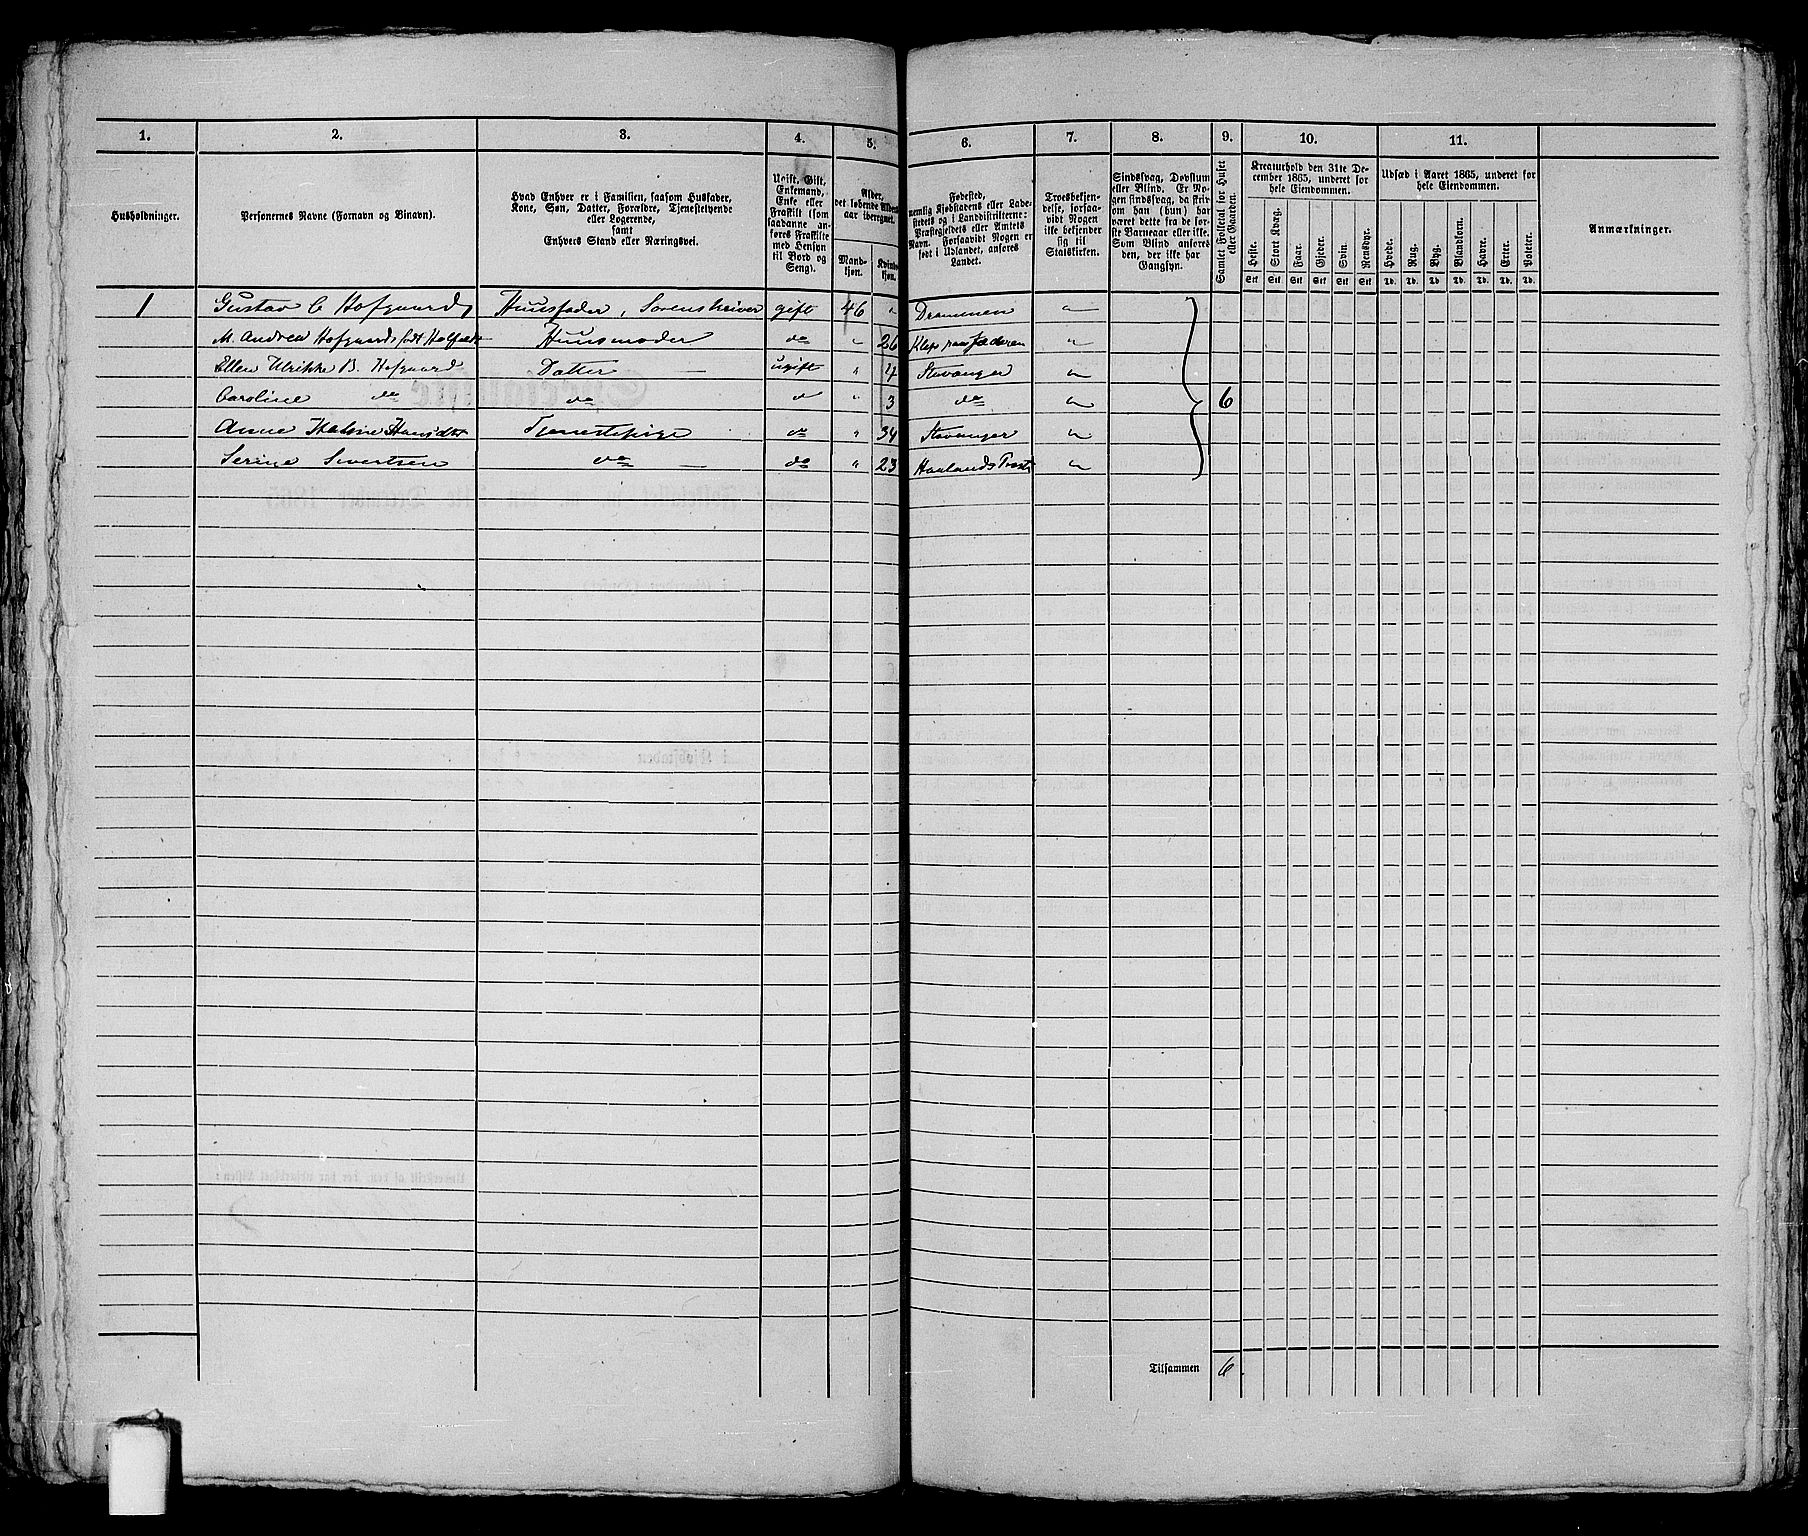 1. 2. 3. 4. 5. 6. 7. 8. 9. 10. 11.
Husholdninger.
Personernes Navne (Fornavn og Binavn).
Hvad Enhver er i Familien, saasom Husfader,
Kone, Søn, Datter, Forældre, Tjenestetyende
eller Logerende,
samt
Enhvers Stand eller Næringsvei.
Ugift, Gift,
Enkemand,
Enke eller
Fraskilt (som
saadanne an-
føres Fraskilte
med Hensyn
til Bord og
Seng).
Alder,
det løbende Alders-
aar iberegnet.
Mand-
kjøn.
Kvinde-
kjøn.
Fødested,
nemlig Kjøbstadens eller Lade-
stedets og i Landdistrikterne:
Præstegjeldets eller Amtets
Navn. Forsaavidt Nogen er
født i Udlandet, anføres
Landet.
Troesbekjen-
delse, forsaa-
vidt Nogen
ikke bekjender
sig til
Statskirken.
Sindssvag, Døvstum
eller Blind. Er No-
gen sindssvag, da skriv
om han (hun) har
været dette fra de før-
ste Barneaar eller ikke.
Som Blind anføres
den, der ikke har
Gangsyn.
Samlet Folketal for Huset
eller Gaarden.
Kreaturhold den 31te De-
cember 1865, underet for
hele Eiendommen.
Heste. Stort Kvæg. Faar. Gjeder. Svin. Rensdyr.
Stk Stk Stk Stk Stk Stk
Udsæd i Aaret 1865, underet for
hele Eiendommen.
Hvede. Rug. Byg. Blandkorn. Havre. Erter. Poteter.
Td. Td. Td. Td. Td. Td. Td.
Anmærkninger.
1 Gustav C Hofgaard Huusfader, Sorenskriver gift 46 " Drammen "
M. Andrea Hofgaard født Huusmoder do " 26 Klep Jæderen "
Ellen Ulrikke B. Hofgaard Datter — ugift " 4 Stavanger "
Caroline do do " " 3 do " 6
Anne Tjenestepige do " 34 Stavanger "
Serine Sivertsen do — do " 23 Haalands Præst "
Tilsammen 6